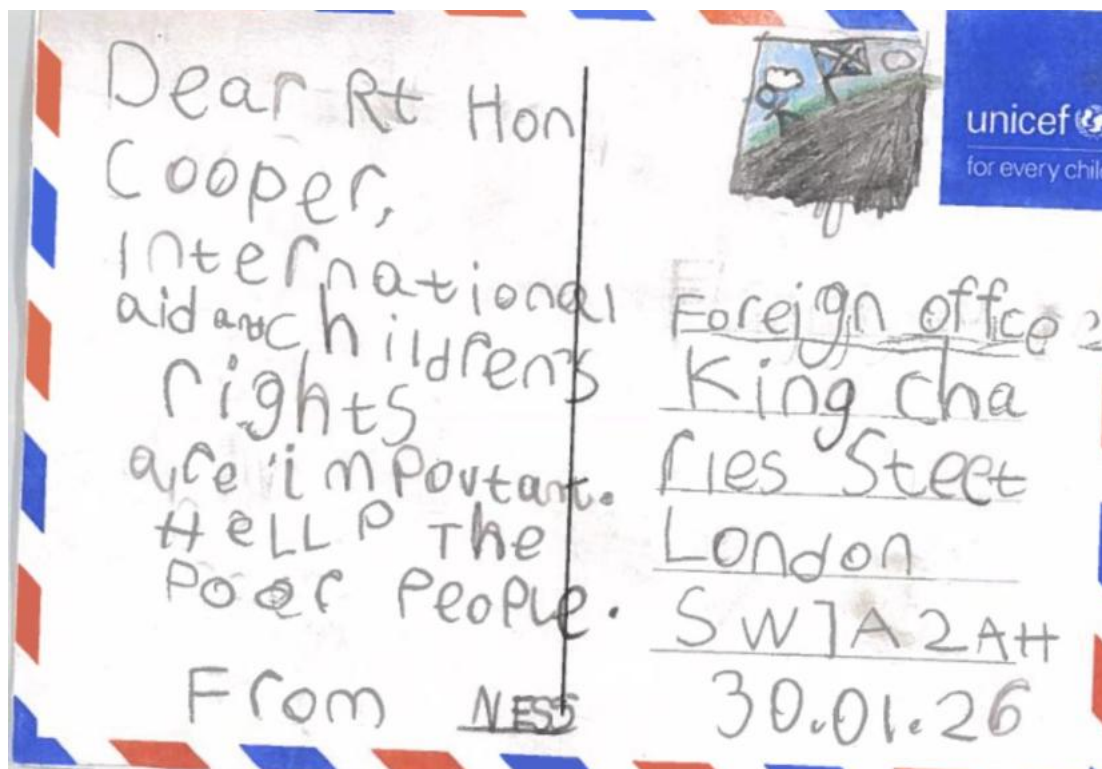 Dear Rt Hon
Cooper,
International
aid and children's
rights
are important.
HeLLP The
Pooer PeoPle.
From NESS
unicef
for every child
Foreign office
King Cha
rles Steet
London
SW1A 2AH
30.01.26